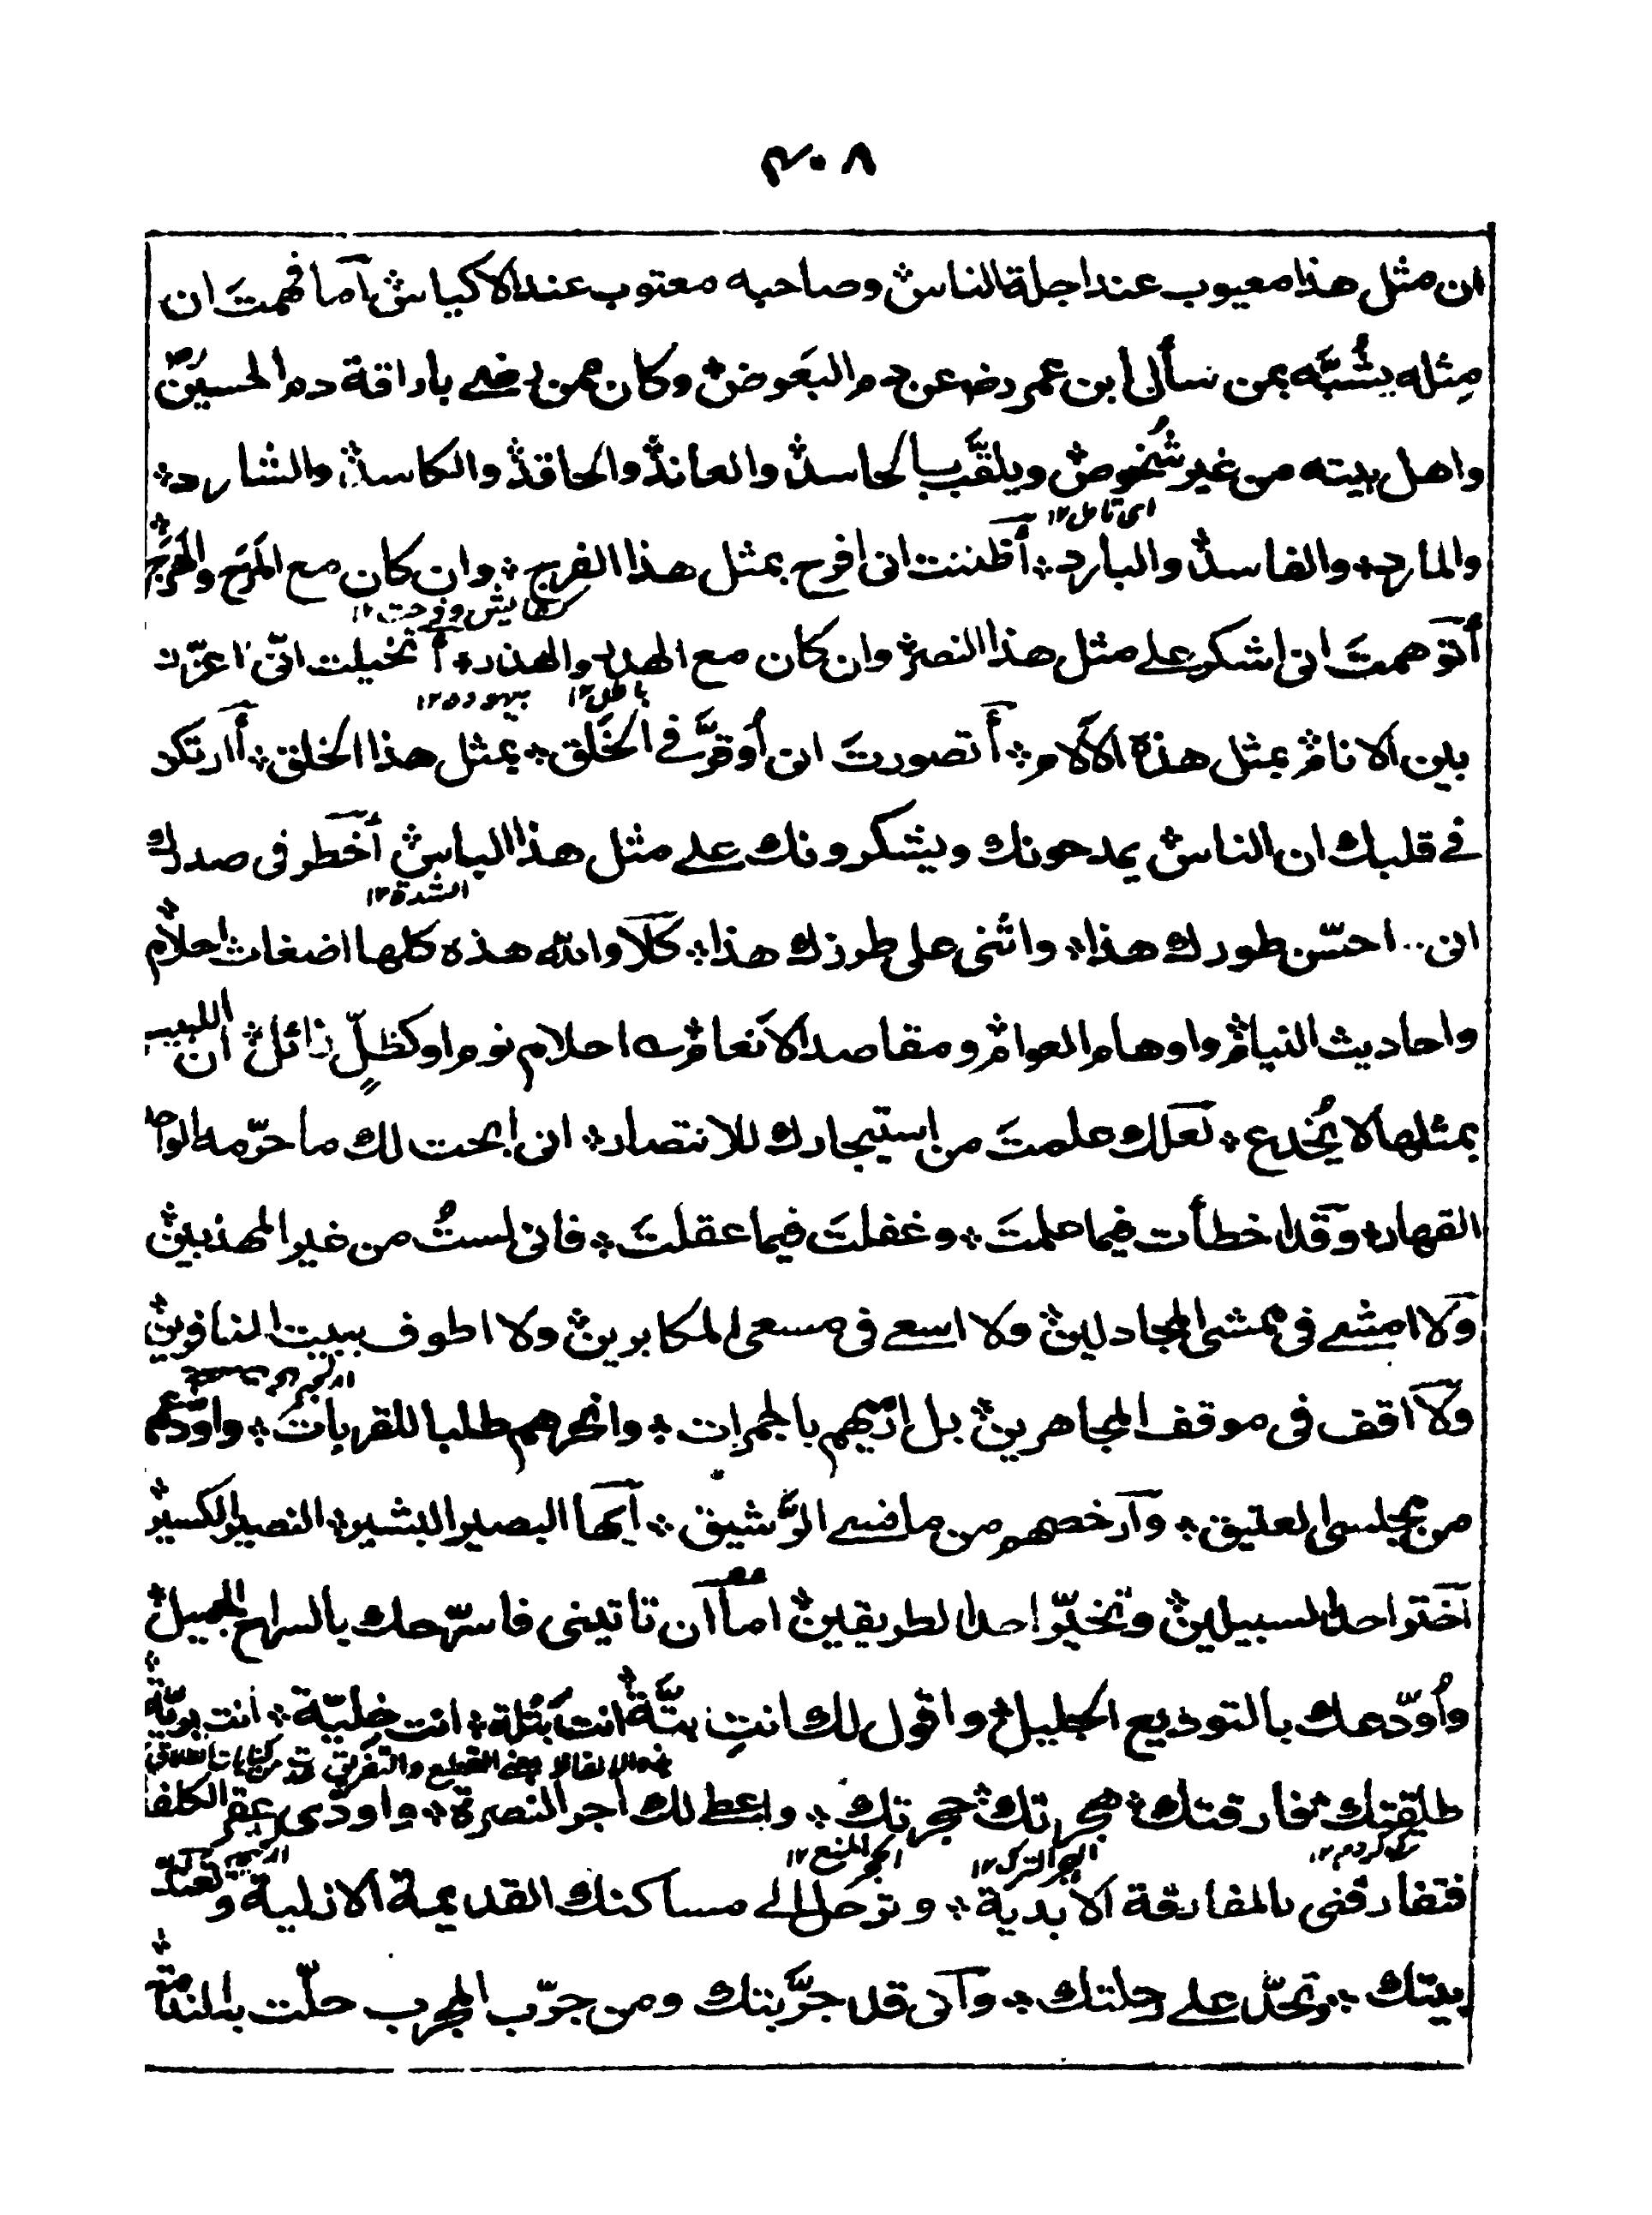 ٣٠٨
ان مثل هذا معيوب عند اجلة الناس ؞ وصاحبه معتوب عند الاكياس ؞ آما فهمتَ ان
مِثله يُشبَّه بمن سأل ابن عمر رضـ عن دم البَعوض ؞ وكان ممن رضى باراقة دم الحسينؓ
واهل بيته من غير شُخوص ؞ ويلقَّب بالحاسد ؞ والعاند ؞ والحاقد ؞ والكاسد ؞ والشارد ؞
اى تامل ١٢
والمارد ؞ والفاسد ؞ والبارد ؞ أظننت انى افرح بمثل هذا الفرج ؞ وان كان مع المَرَج والهَرَج ؞
وفرحت ١٢
أتوهمتَ انى اشكر على مثل هذا النصر ؞ وان كان مع الهدر والهذر ؞ أتخيلت انّى اعزّز
باطل ١٢ بيهوده ١٢
بين الانام ؞ بمثل هذه الآلام ؞ أتصورتَ انى أُوقرَّ فى الخَلق ؞ بمثل هذا الخلق ؞ أارتكد
فى قلبك ان الناس ؞ يمدحونك ويشكرونك على مثل هذا الباس ؞ أخطر فى صدرك
الشدة ١٢
انى احسّن طورك هذا ؞ واثنى على طرزك هذا ؞ كلّا والله هذه كلها اضغاث احلام ؞
واحاديث النيام ؞ واوهام العوام ؞ ومقاصد الأنعام ؞ ؎ احلام نوم اوكظلٍّ زائل ؞ ان اللبيب
بمثلها لا يُخدع ؞ لعلك علمتَ من استيجارك للانتصار ؞ انى ابحت لك ما حرّمه الواحد
القهار ؞ وقد اخطأت فيما علمتَ ؞ وغفلتَ فيما عقلتَ ؞ فانى لستُ من غير المهذبين ؞
ولا امشى فى ممشى المجادلين ؞ ولا اسعى فى مسعى المكابرين ؞ ولا اطوف ببيت المنافرين ؞
ولا اقف فى موقف المجاهرين ؞ بل ارميهم بالجمرات ؞ وانحرهم طلبا للقربات ؞ واودّعهم
من مجلسى العتيق ؞ وارخصهم من ماضى الرَّشيق ؞ أيها البصير البشير ؞ النصير الكسير ؞
اختر احد السبيلين ؞ وتخيّر احد الطريقين ؞ امّا ان تاتينى فاسرّحك بالسراح الجميل ؞
وأُودّعك بالتوديع الجليل ؞ واقول لك انتِ بتَّة ؞ انت بَتْلة ؞ انت خليّة ؞ انت بريّة ؞
هذه الالفاظ بمعنى القطع والتفريق
طلقتك ؞ فارقتك ؞ هجرتك ؞ حجرتك ؞ واعطى لك اجر النصرة ؞ واودّى عقر الكلفة
ترك كردم ١٢ الهجر الترك ١٢ الحجر المنع ١٢
فتفارقنى بالمفارقة الابدية ؞ وترحل الى مساكنك القديمة الازلية وتعتد
بيتك ؞ وتحدّ على رحلتك ؞ وانى قد جرَّبتك ومن جرّب المجرب حلّت به الندامة ؞